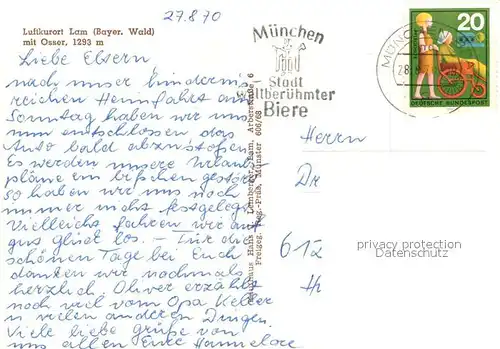 27.8.70
Luftkurort Lam (Bayer. Wald)
mit Osser, 1293 m
Liebe Eltern
nach unser hindernis
reichen Heimfahrt am
Sonntag haben wir uns
nun entschlossen das
Auto bald abzustoßen
Es werden unsere Urlaubs
pläne ein bißchen gestört
so haben wir uns noch
immer nicht festgelegt
Vielleicht fahren wir auf
gut Glück los. – Für die
schönen Tage bei Euch
danken wir nochmals
herzlich. Oliver erzählt
noch viel vom Opa Keller
u vielen anderen Dingen.
Viele liebe Grüße von
uns allen Eure Hannelore
München
Stadt
weltberühmter
Biere
MÜNCH
28.8
20
DEUTSCHE BUNDESPOST
Hans Lam, Arberstraße 6
Freigeg. Reg.-Präs. Münster 606/68
Herrn
Dr
61
privacy protection
Datenschutz